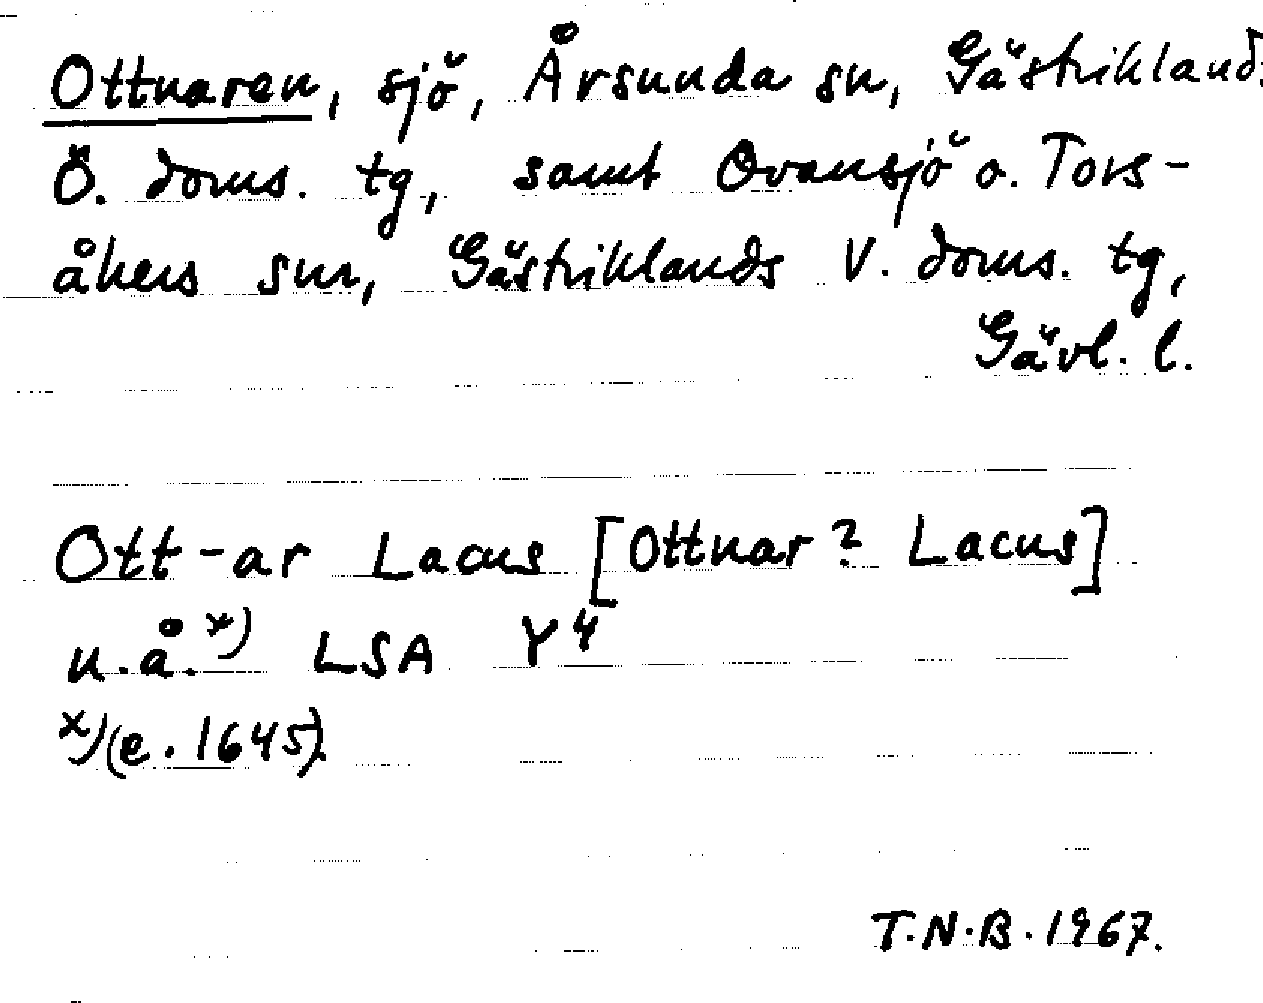 Ottnaren, sjö, Årsunda sn, Gästriklands
Ö. doms. tg, samt Ovansjö o. Tors-
åkers snr, Gästriklands V. doms. tg,
Gävl. l.
Ott-ar Lacus [Ottnar? Lacus]
u.å.x) LSA Y4
x)(e. 1645).
T.N.B. 1967.